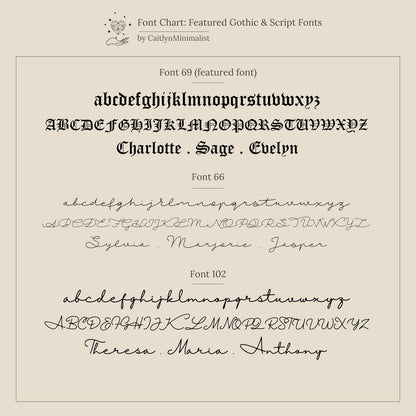 Font Chart: Featured Gothic & Script Fonts
by CaitlynMinimalist
Font 69 (featured font)
abcdefghijklmnopqrstuvwxyz
ABCDEFGHIJKLMNOPQRSTUVWXYZ
Charlotte . Sage . Evelyn
Font 66
abcdefghijklmnopqrstuvwxyz
ABCDEFGHIJKLMNOPQRSTUVWXYZ
Sylvia . Marjorie . Jasper
Font 102
abcdefghijklmnopqrstuvwxyz
ABCDEFGHIJKLMNOPQRSTUVWXYZ
Theresa . Maria . Anthony